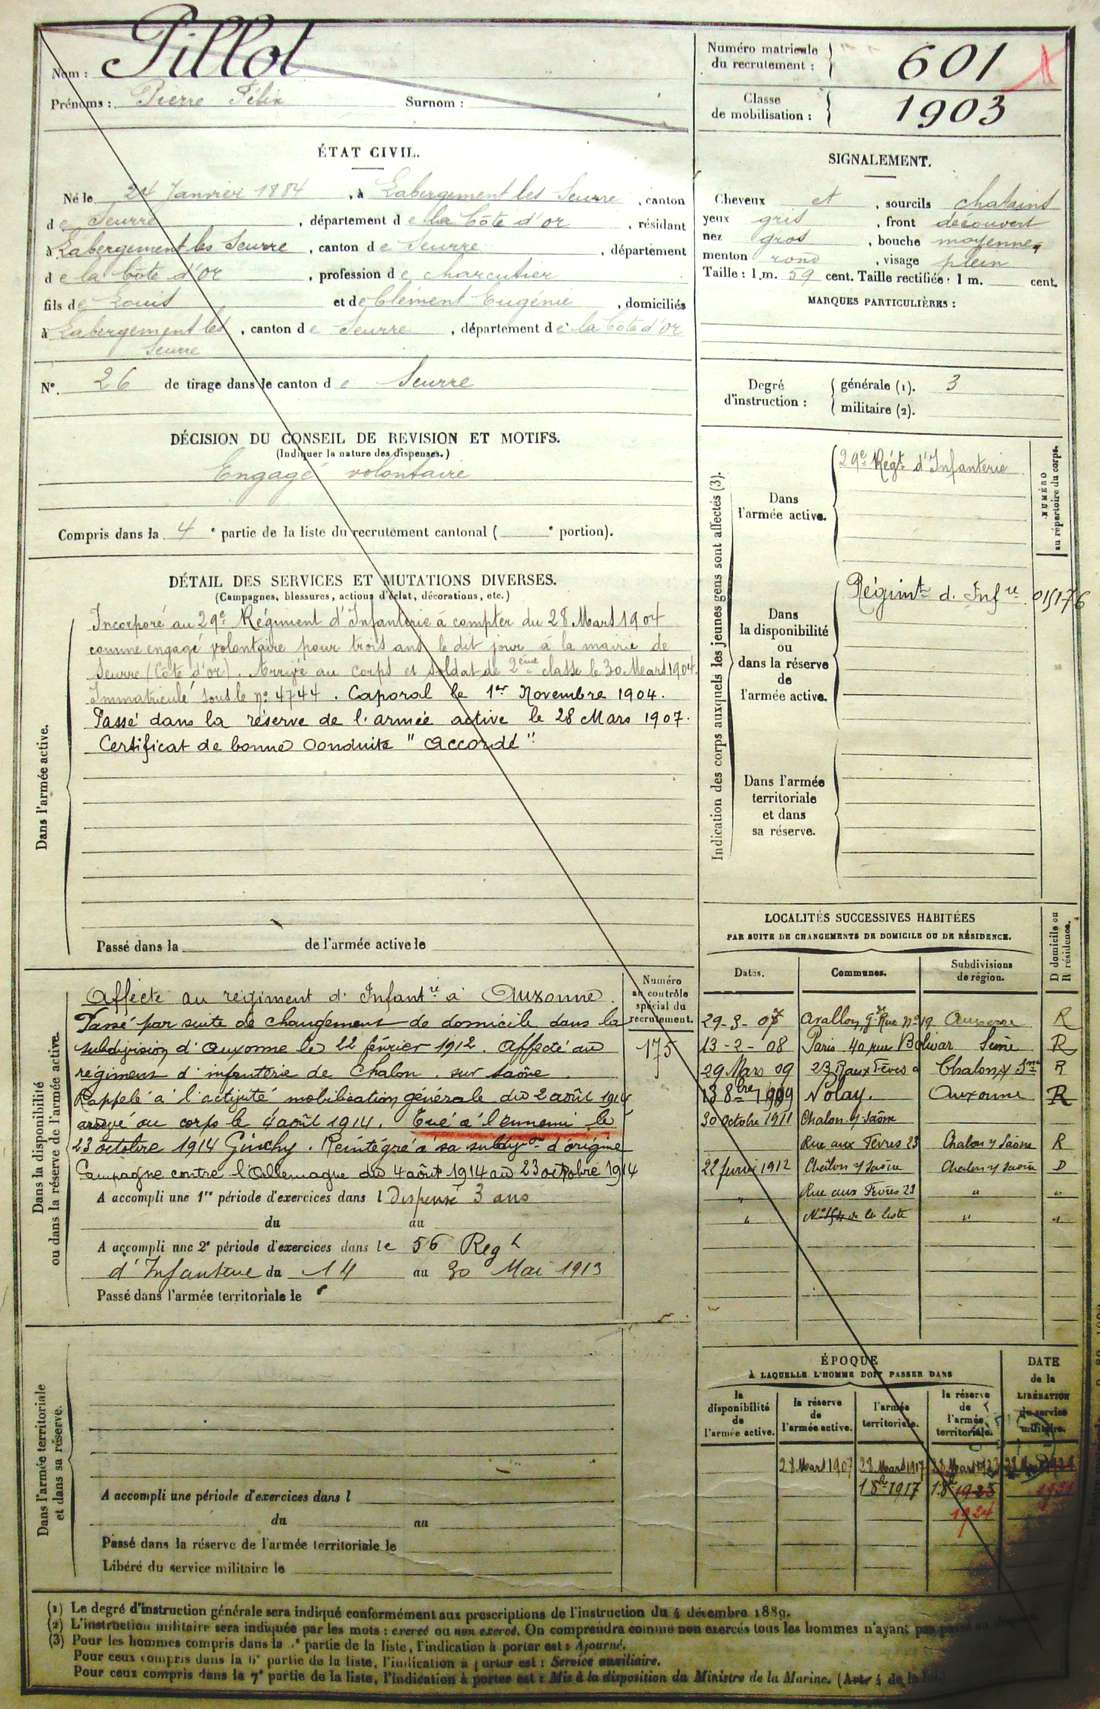 Nom : Pillot
Prénoms : Pierre Félix Surnom :
Numéro matricule du recrutement : 601
Classe de mobilisation : 1903
ÉTAT CIVIL.
Né le 24 Janvier 1884, à Labergement les Seurre, canton
de Seurre, département de la Côte d'or, résidant
à Labergement les Seurre, canton de Seurre, département
de la Côte d'or, profession de charcutier
fils de Louis et de Clément Eugénie, domiciliés
à Labergement les Seurre, canton de Seurre, département de la Côte d'or
N° 26 de tirage dans le canton de Seurre
SIGNALEMENT.
Cheveux et, sourcils chatains
yeux gris, front découvert
nez gros, bouche moyenne,
menton rond, visage plein
Taille : 1 m. 59 cent. Taille rectifiée : 1 m. cent.
MARQUES PARTICULIÈRES :
Degré d'instruction : générale (1). 3
militaire (2).
DÉCISION DU CONSEIL DE REVISION ET MOTIFS.
(Indiquer la nature des dispenses.)
Engagé volontaire
Compris dans la 4e partie de la liste du recrutement cantonal ( e portion).
DÉTAIL DES SERVICES ET MUTATIONS DIVERSES.
(Campagnes, blessures, actions d'éclat, décorations, etc.)
Dans l'armée active.
Incorporé au 29e Régiment d'Infanterie à compter du 28 Mars 1904
comme engagé volontaire pour trois ans le dit jour à la mairie de
Seurre (Côte d'or). Arrivé au corps et soldat de 2ème classe le 30 Mars 1904
Immatriculé sous le n° 4744. Caporal le 1er Novembre 1904.
Passé dans la réserve de l'armée active le 28 Mars 1907.
Certificat de bonne conduite "accordé"
Passé dans la de l'armée active le
Indication des corps auxquels les jeunes gens sont affectés (3).
NUMÉRO au répertoire du corps.
Dans l'armée active.
29e Régt d'Infanterie
Dans la disponibilité ou dans la réserve de l'armée active.
Régimt d. Infie 015176
Dans l'armée territoriale et dans sa réserve.
Dans la disponibilité ou dans la réserve de l'armée active.
Numéro au contrôle spécial du recrutement.
175
Affecté au régiment d'Infantie à Auxonne.
Passé par suite de changement de domicile dans la
subdivision d'Auxonne le 22 février 1912. Affecté au
régiment d'infanterie de Chalon sur Saône
Rappelé à l'activité mobilisation générale du 2 août 1914
arrivé au corps le 4 août 1914. Tué à l'ennemi le
23 octobre 1914 Ginchy. Réintégré à sa subdyon d'origine
Campagne contre l'Allemagne du 4 août 1914 au 23 octobre 1914
A accompli une 1re période d'exercices dans l Dispensé 3 ans
du au
A accompli une 2e période d'exercices dans le 56 Regt
d'Infanterie du 14 au 30 Mai 1913
Passé dans l'armée territoriale le
LOCALITÉS SUCCESSIVES HABITÉES
PAR SUITE DE CHANGEMENTS DE DOMICILE OU DE RÉSIDENCE.
Dates. Communes. Subdivisions de région. D domicile ou R résidence.
29-3-07 Avallon, gde Rue n° 19 Auxerre R
13-2-08 Paris 40 rue Bolivar Seine R
29 Mars 09 23 R aux Fèvres Chalon s/ Sne R
13 8bre 1909 Nolay. Auxonne R
30 Octobre 1911 Chalon s/ Saône
Rue aux Fèvres 23 Chalon s/ Saône R
22 février 1912 Chalon s/ Saône Chalon s/ Saône D
" Rue aux Fèvres 23 " "
" de la liste " "
Dans l'armée territoriale et dans sa réserve.
A accompli une période d'exercices dans l
du au
Passé dans la réserve de l'armée territoriale le
Libéré du service militaire le
ÉPOQUE
À LAQUELLE L'HOMME DOIT PASSER DANS
la disponibilité de l'armée active. la réserve de l'armée active. l'armée territoriale. la réserve de l'armée territoriale.
DATE de la LIBÉRATION du service militaire.
28 Mars 1907 28 Mars 1917 28 Mars 1923
1 8bre 1917 1 8bre 1923
1924
(1) Le degré d'instruction générale sera indiqué conformément aux prescriptions de l'instruction du 4 décembre 1889.
(2) L'instruction militaire sera indiquée par les mots : exercé ou non exercé. On comprendra comme non exercés tous les hommes n'ayant pas
(3) Pour les hommes compris dans la 5e partie de la liste, l'indication à porter est : Ajourné.
Pour ceux compris dans la 6e partie de la liste, l'indication à porter est : Service auxiliaire.
Pour ceux compris dans la 7e partie de la liste, l'indication à porter est : Mis à la disposition du Ministre de la Marine. (Art. 4 de la loi